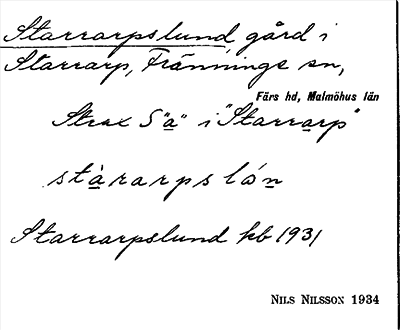 Starrarpslund, gård i
Starrarp, Frännings sn,
Färs hd, Malmöhus län
Strax S "a" i "Starrarp"
stàrarpslón
Starrarpslund kb 1931
NILS NILSSON 1934